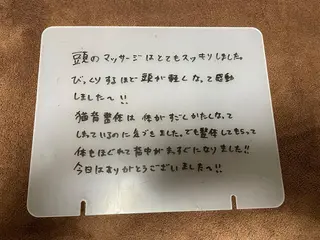 頭のマッサージはとてもスッキリしました。
びっくりするほど頭が軽くなって感動
しました〜!!
猫背整体は体がすごしかたしなって
しまっているのに気づきました。でも整体してもらって
体もほぐれて背中がまっすぐになりました!!
今日はありがとうございました〜!!